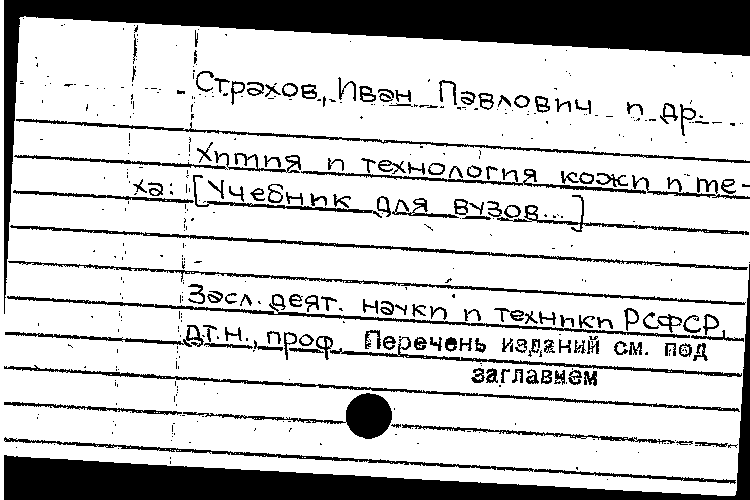 Страхов, Иван Павлович и др.
Химия и технология кожи и ме-
ха: [Учебник для вузов...]
Засл. деят. науки и техники РСФСР,
д.т.н., проф. Перечень изданий см. под
заглавием